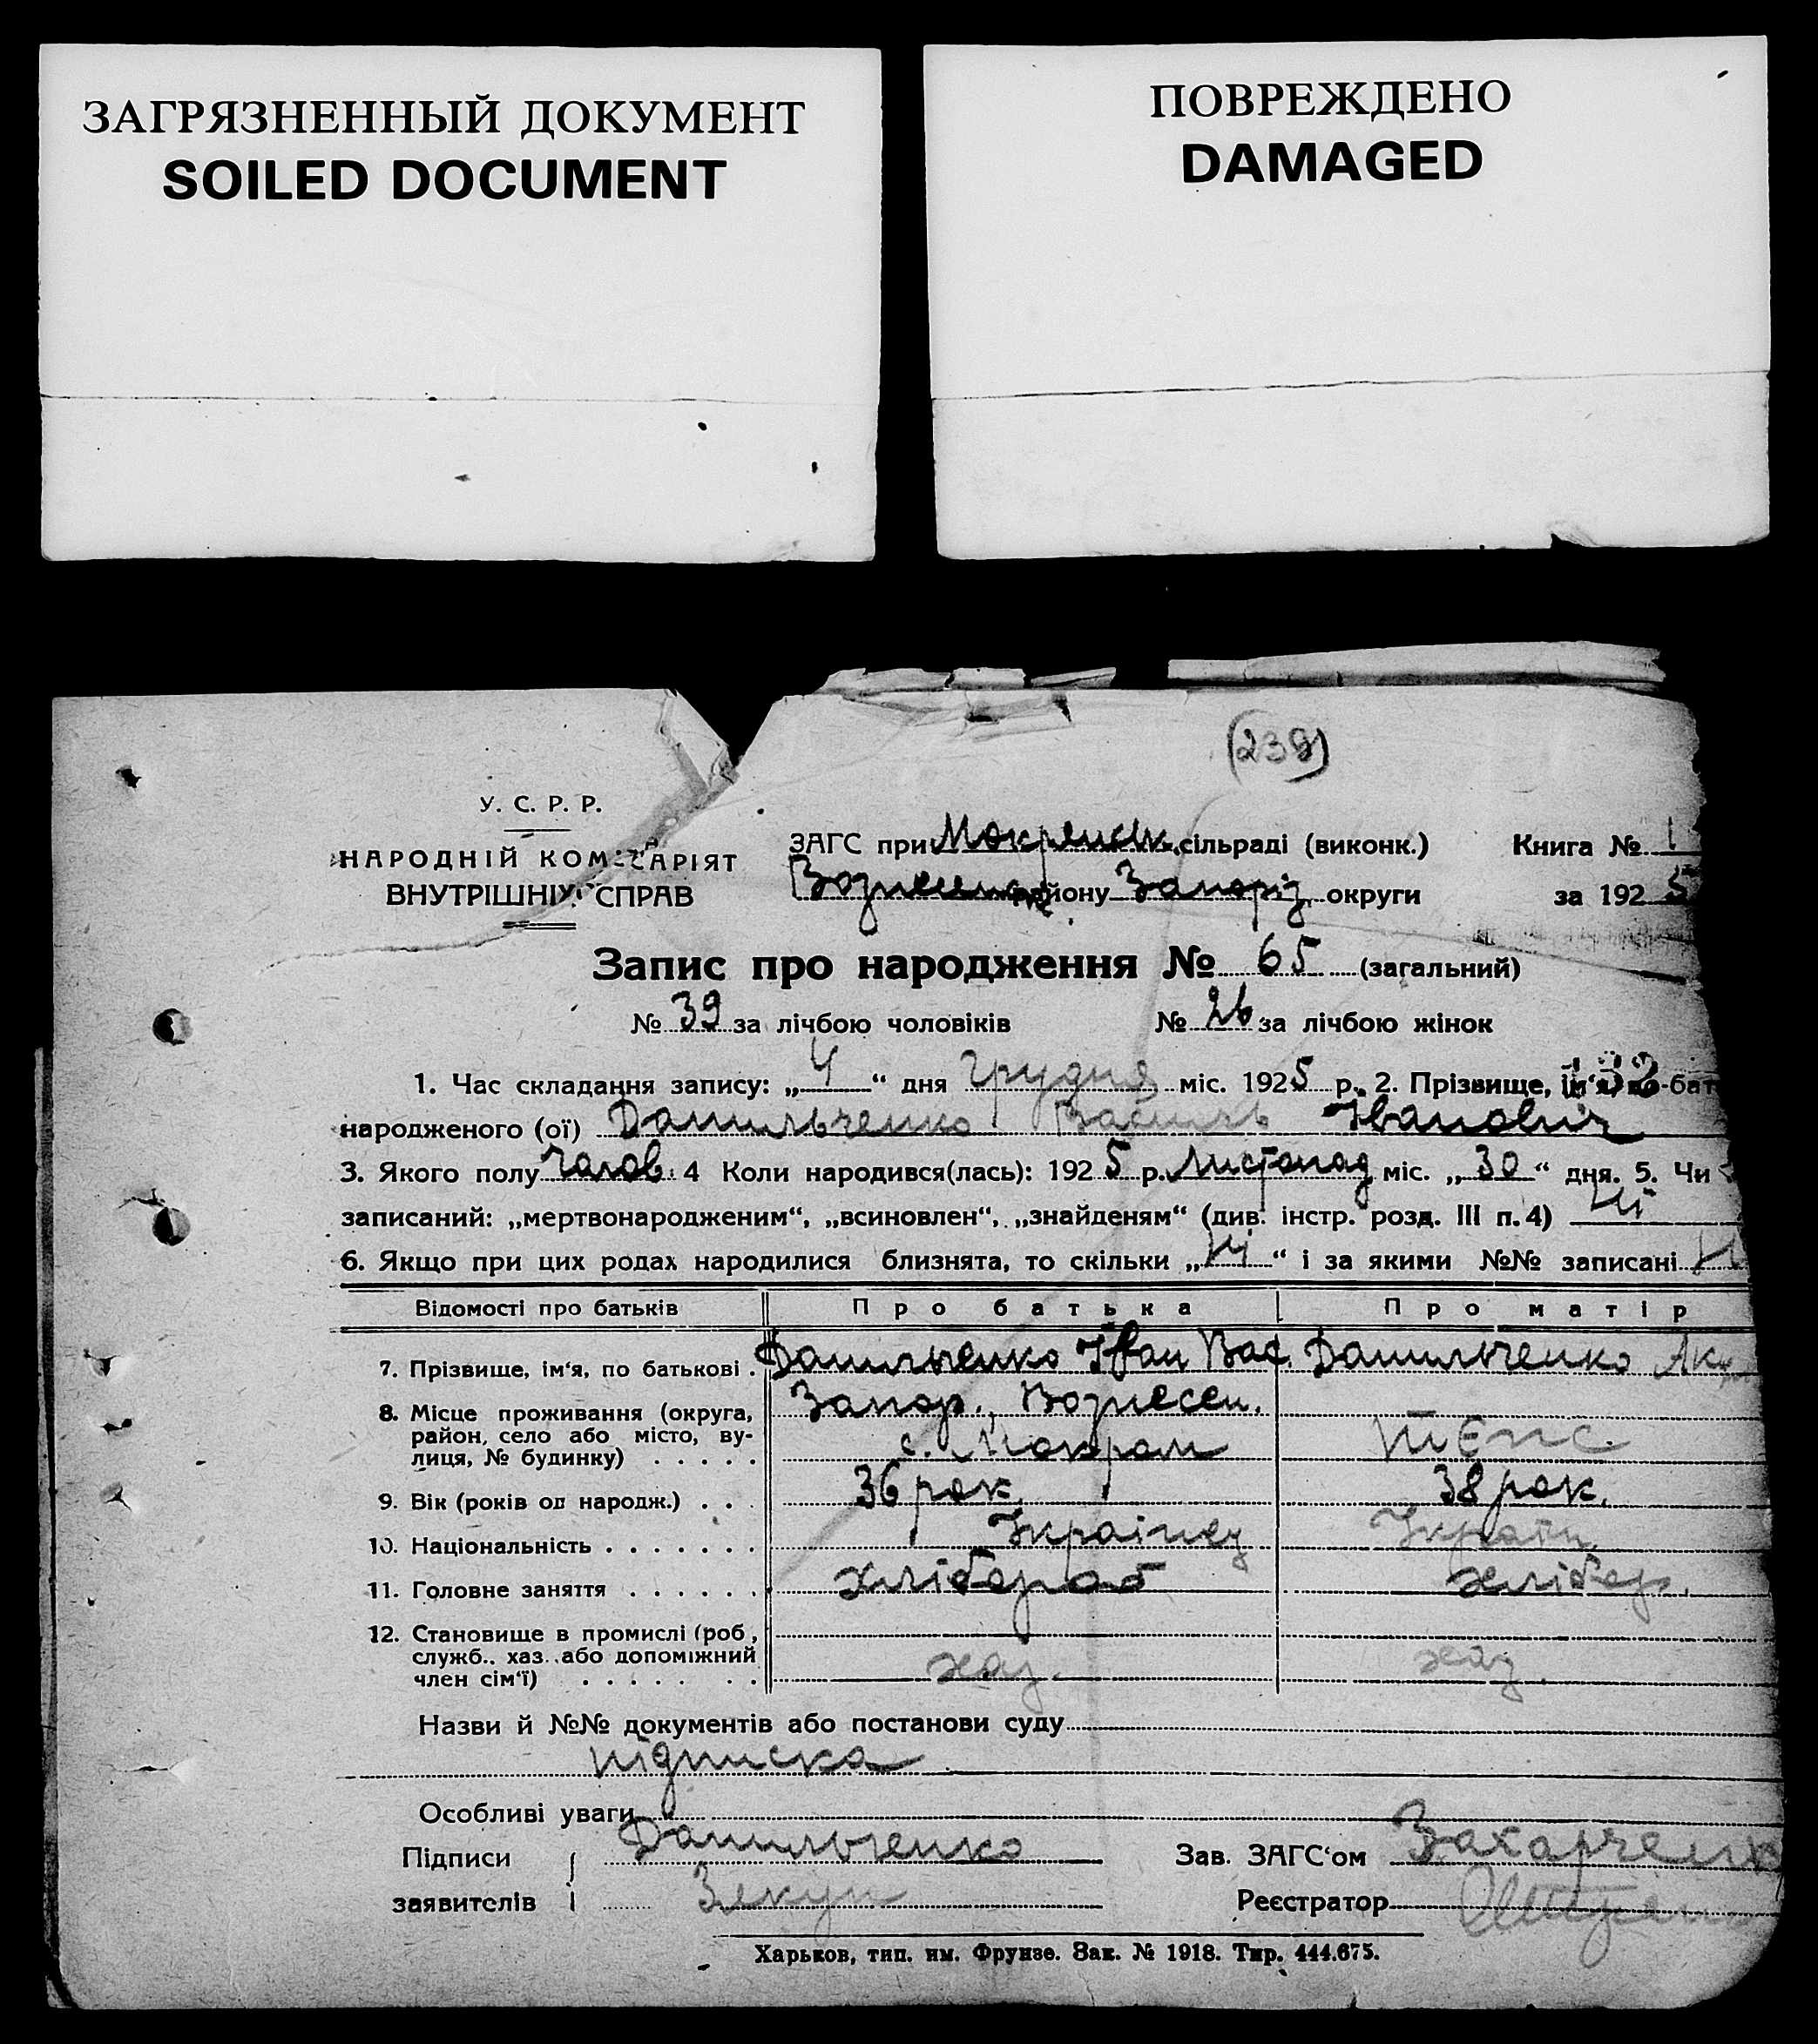 ЗАГРЯЗНЕННЫЙ ДОКУМЕНТ
SOILED DOCUMENT
ПОВРЕЖДЕНО
DAMAGED
(239)
У. С. Р. Р.
НАРОДНІЙ КОМІСАРІЯТ
ВНУТРІШНІХ СПРАВ
ЗАГС при Мокрянськ. сільраді (виконк.) Книга № 1
Вознесенськ району Запоріз. округи за 1925
Запис про народження № 65 (загальний)
№ 39 за лічбою чоловіків № 26 за лічбою жінок
1. Час складання запису: „4“ дня Грудня міс. 1925 р. 2. Прізвище, ім'я, по-бат
132
народженого (ої) Данильченко Василь Іванович
3. Якого полу чолов. 4 Коли народився(лась): 1925 р. Листопад міс. „30“ дня. 5. Чи
записаний: „мертвонародженим“, „всиновлен“, „знайденям“ (див. інстр. розд. III п. 4) Ні
6. Якщо при цих родах народилися близнята, то скільки „Ні“ і за якими №№ записані
Відомості про батьків Про батька Про матір
7. Прізвище, ім‘я, по батькові . Данильченко Іван Вас. Данильченко Аку
8. Місце проживання (округа, Запор., Вознесен.
район, село або місто, ву-
лиця, № будинку) . . . . . с. Мокром
9. Вік (років од народж.) . . . 36 рок. 38 рок.
10. Національність . . . . . . . Українец Україн.
11. Головне заняття . . . . . . хлібороб хлібор.
12. Становище в промислі (роб.,
служб., хаз. або допоміжний
член сім‘ї) . . . . . . . хаз. хаз.
Назви й №№ документів або постанови суду
підписка
Особливі уваги
Підписи Данильченко Зав. ЗАГС‘ом Захарченко
заявителів Реєстратор
Харьков, тип. им. Фрунзе. Зак. № 1918. Тир. 444.675.